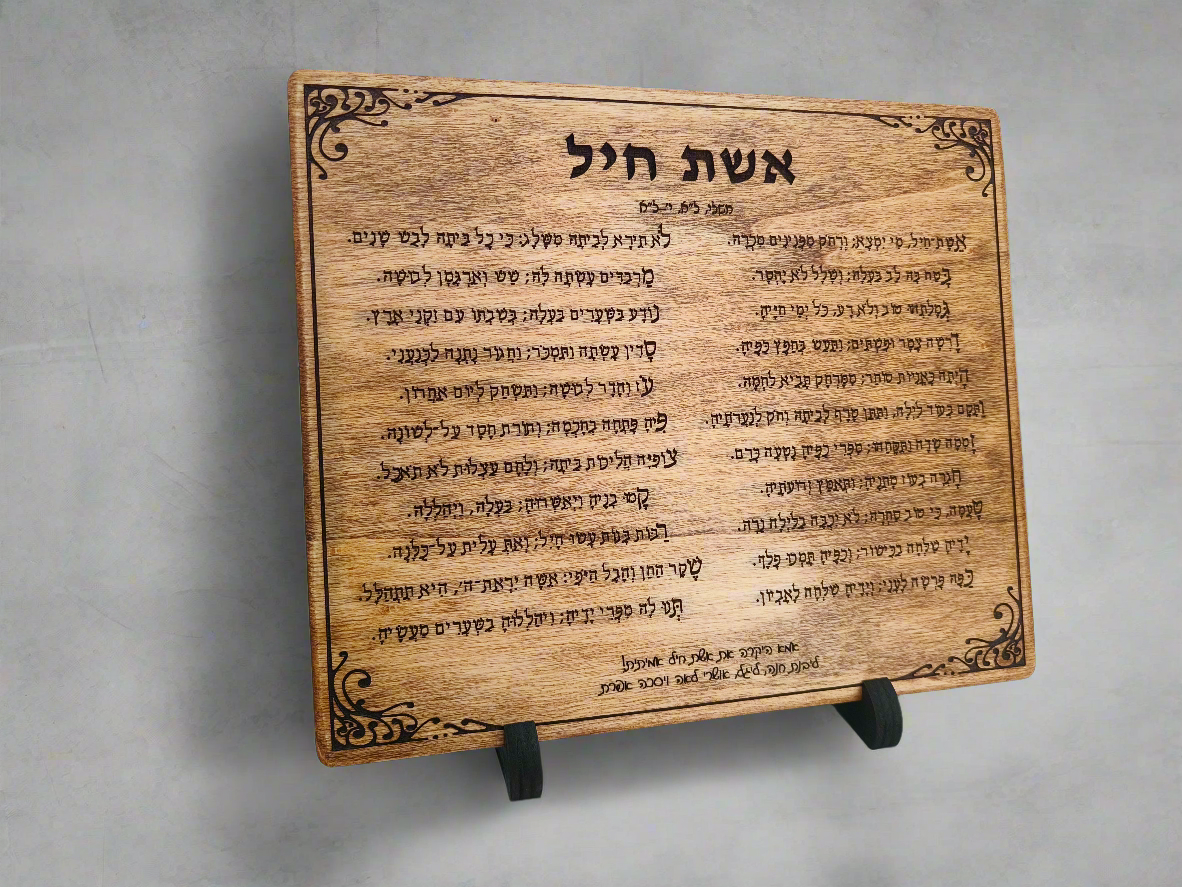 אשת חיל
משלי, ל״א, י׳-ל״א
אֵשֶׁת־חַיִל, מִי יִמְצָא; וְרָחֹק מִפְּנִינִים מִכְרָהּ.
בָּטַח בָּהּ לֵב בַּעְלָהּ; וְשָׁלָל לֹא יֶחְסָר.
גְּמָלַתְהוּ טוֹב וְלֹא רָע, כֹּל יְמֵי חַיֶּיהָ.
דָּרְשָׁה צֶמֶר וּפִשְׁתִּים; וַתַּעַשׂ בְּחֵפֶץ כַּפֶּיהָ.
הָיְתָה כָּאֳנִיּוֹת סוֹחֵר; מִמֶּרְחָק תָּבִיא לַחְמָהּ.
וַתָּקָם בְּעוֹד לַיְלָה, וַתִּתֵּן טֶרֶף לְבֵיתָהּ וְחֹק לְנַעֲרֹתֶיהָ.
זָמְמָה שָׂדֶה וַתִּקָּחֵהוּ; מִפְּרִי כַפֶּיהָ נָטְעָה כָּרֶם.
חָגְרָה בְעוֹז מָתְנֶיהָ; וַתְּאַמֵּץ זְרוֹעֹתֶיהָ.
טָעֲמָה, כִּי טוֹב סַחְרָהּ; לֹא יִכְבֶּה בַלַּיְלָה נֵרָהּ.
יָדֶיהָ שִׁלְּחָה בַכִּישׁוֹר; וְכַפֶּיהָ תָּמְכוּ פָלֶךְ.
כַּפָּהּ פָּרְשָׂה לֶעָנִי; וְיָדֶיהָ שִׁלְּחָה לָאֶבְיוֹן.
לֹא תִירָא לְבֵיתָהּ מִשָּׁלֶג; כִּי כָל בֵּיתָהּ לָבֻשׁ שָׁנִים.
מַרְבַדִּים עָשְׂתָה לָּהּ; שֵׁשׁ וְאַרְגָּמָן לְבוּשָׁהּ.
נוֹדָע בַּשְּׁעָרִים בַּעְלָהּ; בְּשִׁבְתּוֹ עִם זִקְנֵי אָרֶץ.
סָדִין עָשְׂתָה וַתִּמְכֹּר; וַחֲגוֹר נָתְנָה לַכְּנַעֲנִי.
עֹז וְהָדָר לְבוּשָׁהּ; וַתִּשְׂחַק לְיוֹם אַחֲרוֹן.
פִּיהָ פָּתְחָה בְחָכְמָה; וְתוֹרַת חֶסֶד עַל-לְשׁוֹנָהּ.
צוֹפִיָּה הֲלִיכוֹת בֵּיתָהּ; וְלֶחֶם עַצְלוּת לֹא תֹאכֵל.
קָמוּ בָנֶיהָ וַיְאַשְּׁרוּהָ; בַּעְלָהּ, וַיְהַלְלָהּ.
רַבּוֹת בָּנוֹת עָשׂוּ חָיִל; וְאַתְּ עָלִית עַל-כֻּלָּנָה.
שֶׁקֶר הַחֵן וְהֶבֶל הַיֹּפִי; אִשָּׁה יִרְאַת-ה׳, הִיא תִתְהַלָּל.
תְּנוּ לָהּ מִפְּרִי יָדֶיהָ; וִיהַלְלוּהָ בַשְּׁעָרִים מַעֲשֶׂיהָ.
אמא היקרה את אשת חיל אמיתית!
חנה, אושרי לאה ויסכה אפרת